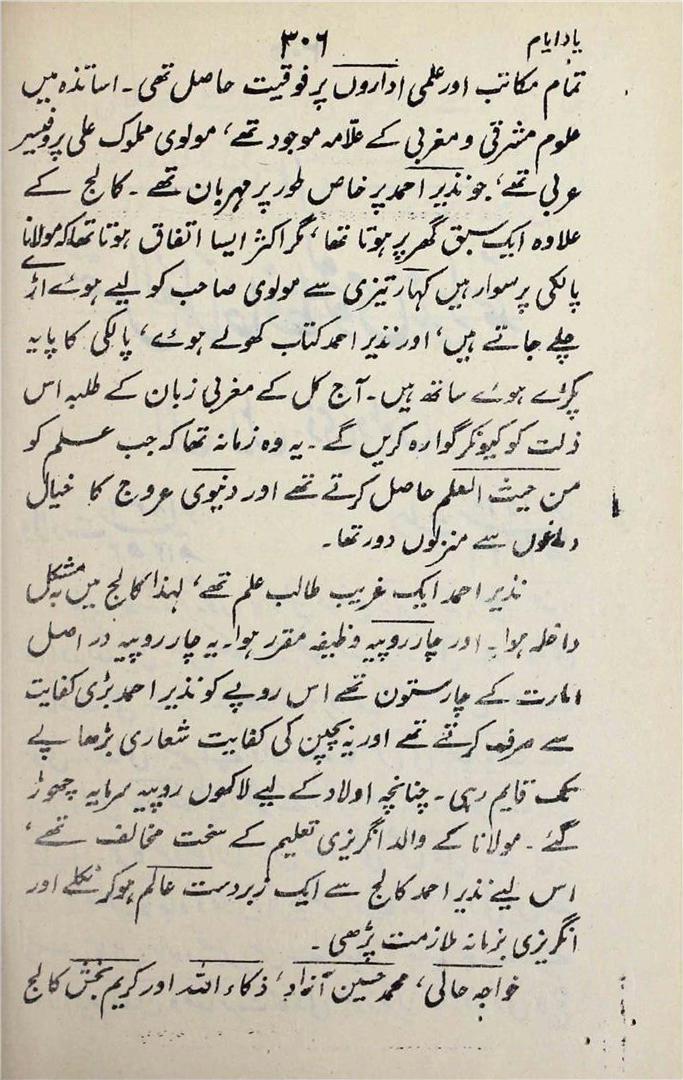 یادایام
۳۰۶
تمام مکاتب اور علمی اداروں پر فوقیت حاصل تھی۔ اساتذہ میں
علوم مشرقی و مغربی کے علامہ موجود تھے، مولوی مملوک علی پروفیسر
عربی تھے، جو نذیر احمد پر خاص طور پر مہربان تھے۔ کالج کے
علاوہ ایک سبق گھر پر ہوتا تھا، مگر اکثر ایسا اتفاق ہوتا تھا کہ مولانا
پالکی پر سوار ہیں کہار تیزی سے مولوی صاحب کو لیے ہوئے اڑے
چلے جاتے ہیں، اور نذیر احمد کتاب کھولے ہوئے، پالکی کا پایہ
پکڑے ہوئے ساتھ ہیں۔ آج کل کے مغربی زبان کے طلبہ اس
ذلت کو کیونکر گوارہ کریں گے۔ یہ وہ زمانہ تھا کہ جب علم کو
من حیث العلم حاصل کرتے تھے اور دنیوی عروج کا خیال
دماغوں سے منزلوں دور تھا۔
نذیر احمد ایک غریب طالب علم تھے، لہذا کالج میں بہ مشکل
داخلہ ہوا۔ اور چار روپیہ وظیفہ مقرر ہوا۔ یہ چار روپیہ در اصل
امارت کے چار ستون تھے اس روپے کو نذیر احمد بڑی کفایت
سے صرف کرتے تھے اور یہ بچپن کی کفایت شعاری بڑھاپے
تک قایم رہی۔ چنانچہ اولاد کے لیے لاکھوں روپیہ سرمایہ چھوڑ
گئے۔ مولانا کے والد انگریزی تعلیم کے سخت مخالف تھے،
اس لیے نذیر احمد کالج سے ایک زبردست عالم ہو کر نکلے اور
انگریزی بزمانہ ملازمت پڑھی۔
خواجہ حالی، محمد حسین آزاد، ذکاء اللہ اور کریم بخش کالج